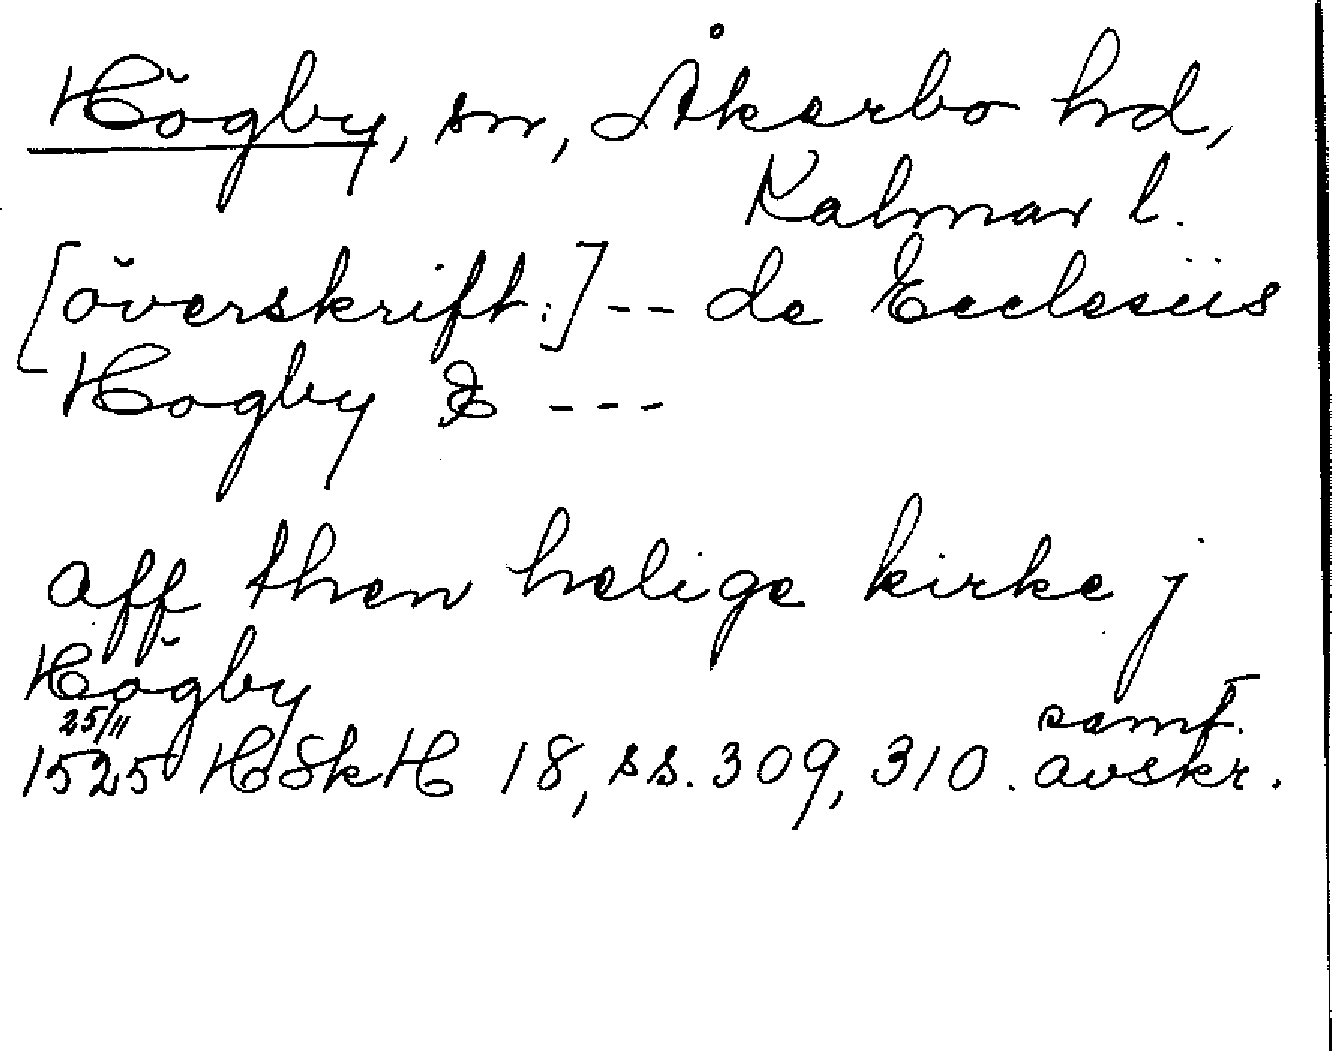 Högby, sn, Åkerbo hd,
Kalmar l.
[överskrift:] -- de Ecclesiis
Hogby & ---
aff then helige kirke j
Högby
25/11 samt.
1525 HSkH 18, ss. 309, 310. avskr.